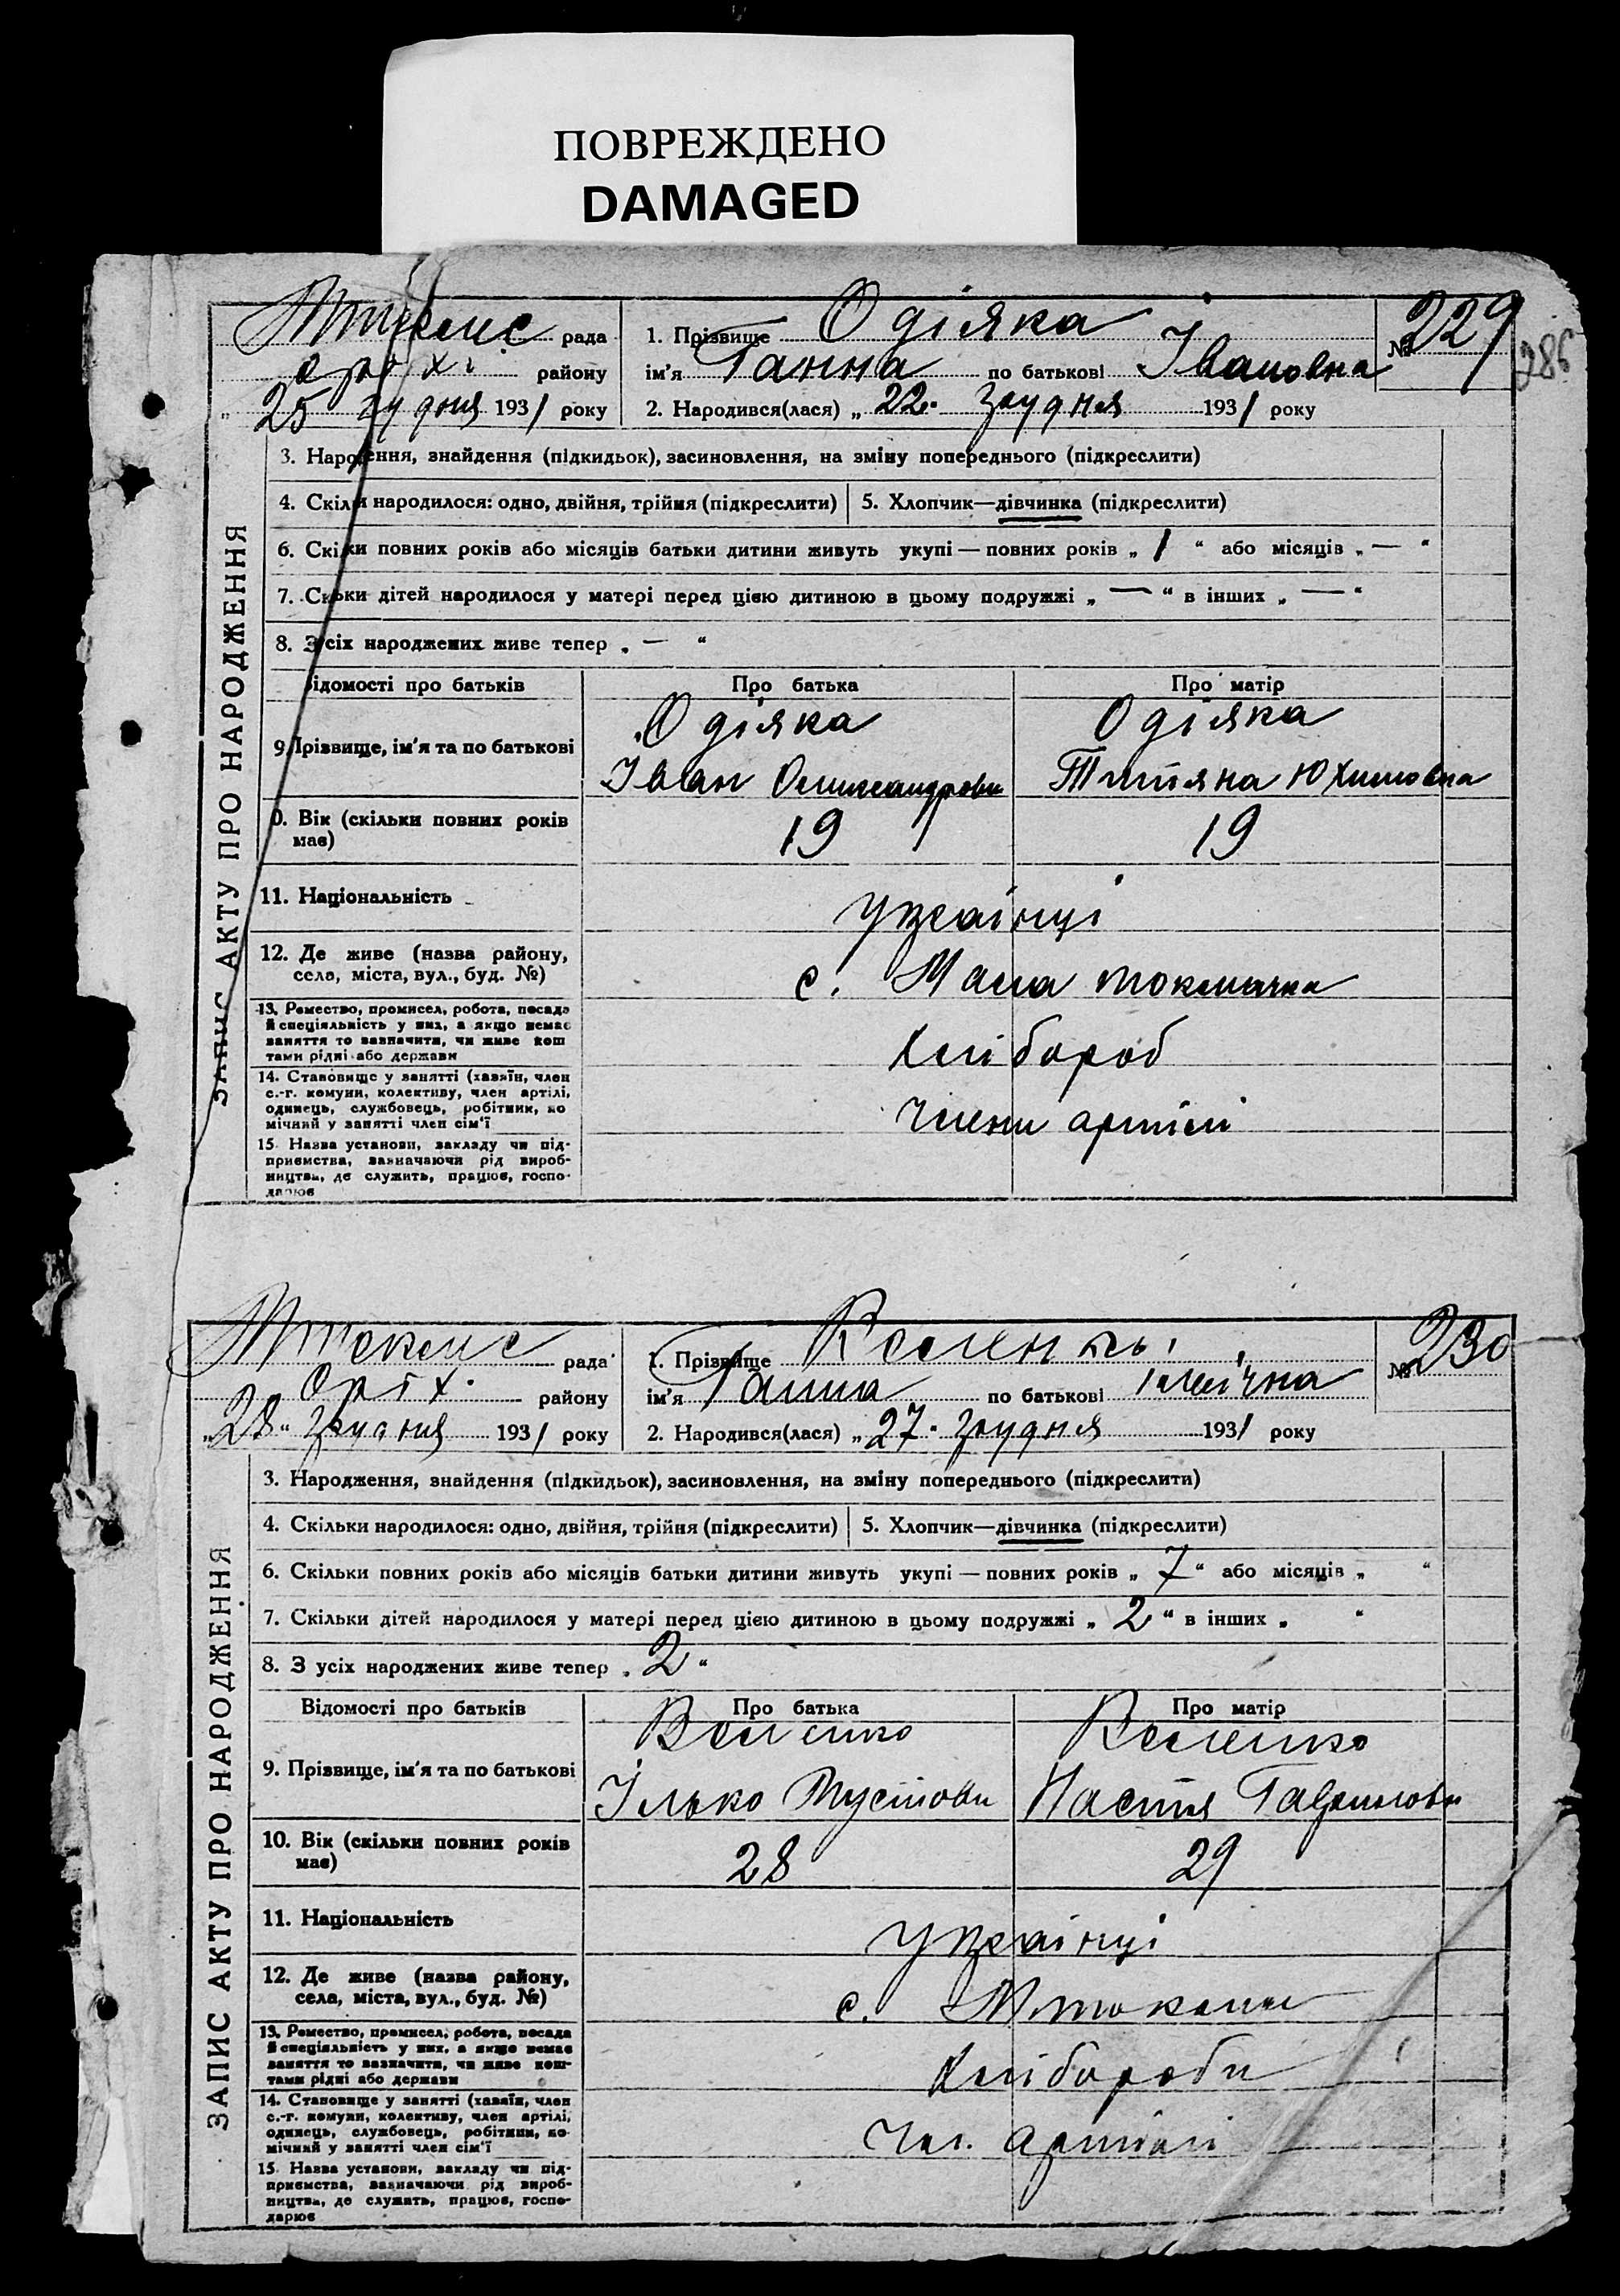 ПОВРЕЖДЕНО
DAMAGED
рада
району
25 грудня 1931 року
1. Прізвище Одіяка
ім'я Ганна по батькові Івановна
2. Народився(лася) „22“ грудня 1931 року
№ 229
286
ЗАПИС АКТУ ПРО НАРОДЖЕННЯ
3. Народження, знайдення (підкидьок), засиновлення, на зміну попереднього (підкреслити)
4. Скільки народилося: одно, двійня, трійня (підкреслити) 5. Хлопчик—дівчинка (підкреслити)
6. Скільки повних років або місяців батьки дитини живуть укупі — повних років „1“ або місяців „—“
7. Скільки дітей народилося у матері перед цією дитиною в цьому подружжі „—“ в інших „—“
8. З усіх народжених живе тепер „—“
Відомості про батьків Про батька Про матір
Одіяка Одіяка
9. Прізвище, ім'я та по батькові
Іван Юхимовна
10. Вік (скільки повних років має) 19 19
11. Національність українці
12. Де живе (назва району,
села, міста, вул., буд. №) с. Мала Токмачка
13. Ремество, промисел, робота, посада
й спеціяльність у них, а якщо немає
заняття то зазначити, чи живе кош
тами рідні або держави
хлібороб
14. Становище у занятті (хазяїн, член
с.-г. комуни, колективу, член артілі,
одинець, службовець, робітник, по
мічний у занятті член сім'ї
члени артілі
15. Назва установи, закладу чи під-
приємства, зазначаючи рід вироб-
ництва, де служить, працює, госпо-
дарює
рада
Оріх. району
„28“ грудня 1931 року
1. Прізвище
ім'я Ганна по батькові Іллічна
2. Народився(лася) „27“ грудня 1931 року
№ 230
ЗАПИС АКТУ ПРО НАРОДЖЕННЯ
3. Народження, знайдення (підкидьок), засиновлення, на зміну попереднього (підкреслити)
4. Скільки народилося: одно, двійня, трійня (підкреслити) 5. Хлопчик—дівчинка (підкреслити)
6. Скільки повних років або місяців батьки дитини живуть укупі — повних років „7“ або місяців „ “
7. Скільки дітей народилося у матері перед цією дитиною в цьому подружжі „2“ в інших „ “
8. З усіх народжених живе тепер „2“
Відомості про батьків Про батька Про матір
9. Прізвище, ім'я та по батькові
Ілько Настя
10. Вік (скільки повних років має) 28 29
11. Національність українці
12. Де живе (назва району,
села, міста, вул., буд. №) с.
13. Ремество, промисел, робота, посада
й спеціяльність у них, а якщо немає
заняття то зазначити, чи живе кош-
тами рідні або держави
хлібороби
14. Становище у занятті (хазяїн, член
с.-г. комуни, колективу, член артілі,
одинець, службовець, робітник, по
мічний у занятті член сім'ї
чл. артілі
15. Назва установи, закладу чи під-
приємства, зазначаючи рід вироб-
ництва, де служить, працює, госпо-
дарює